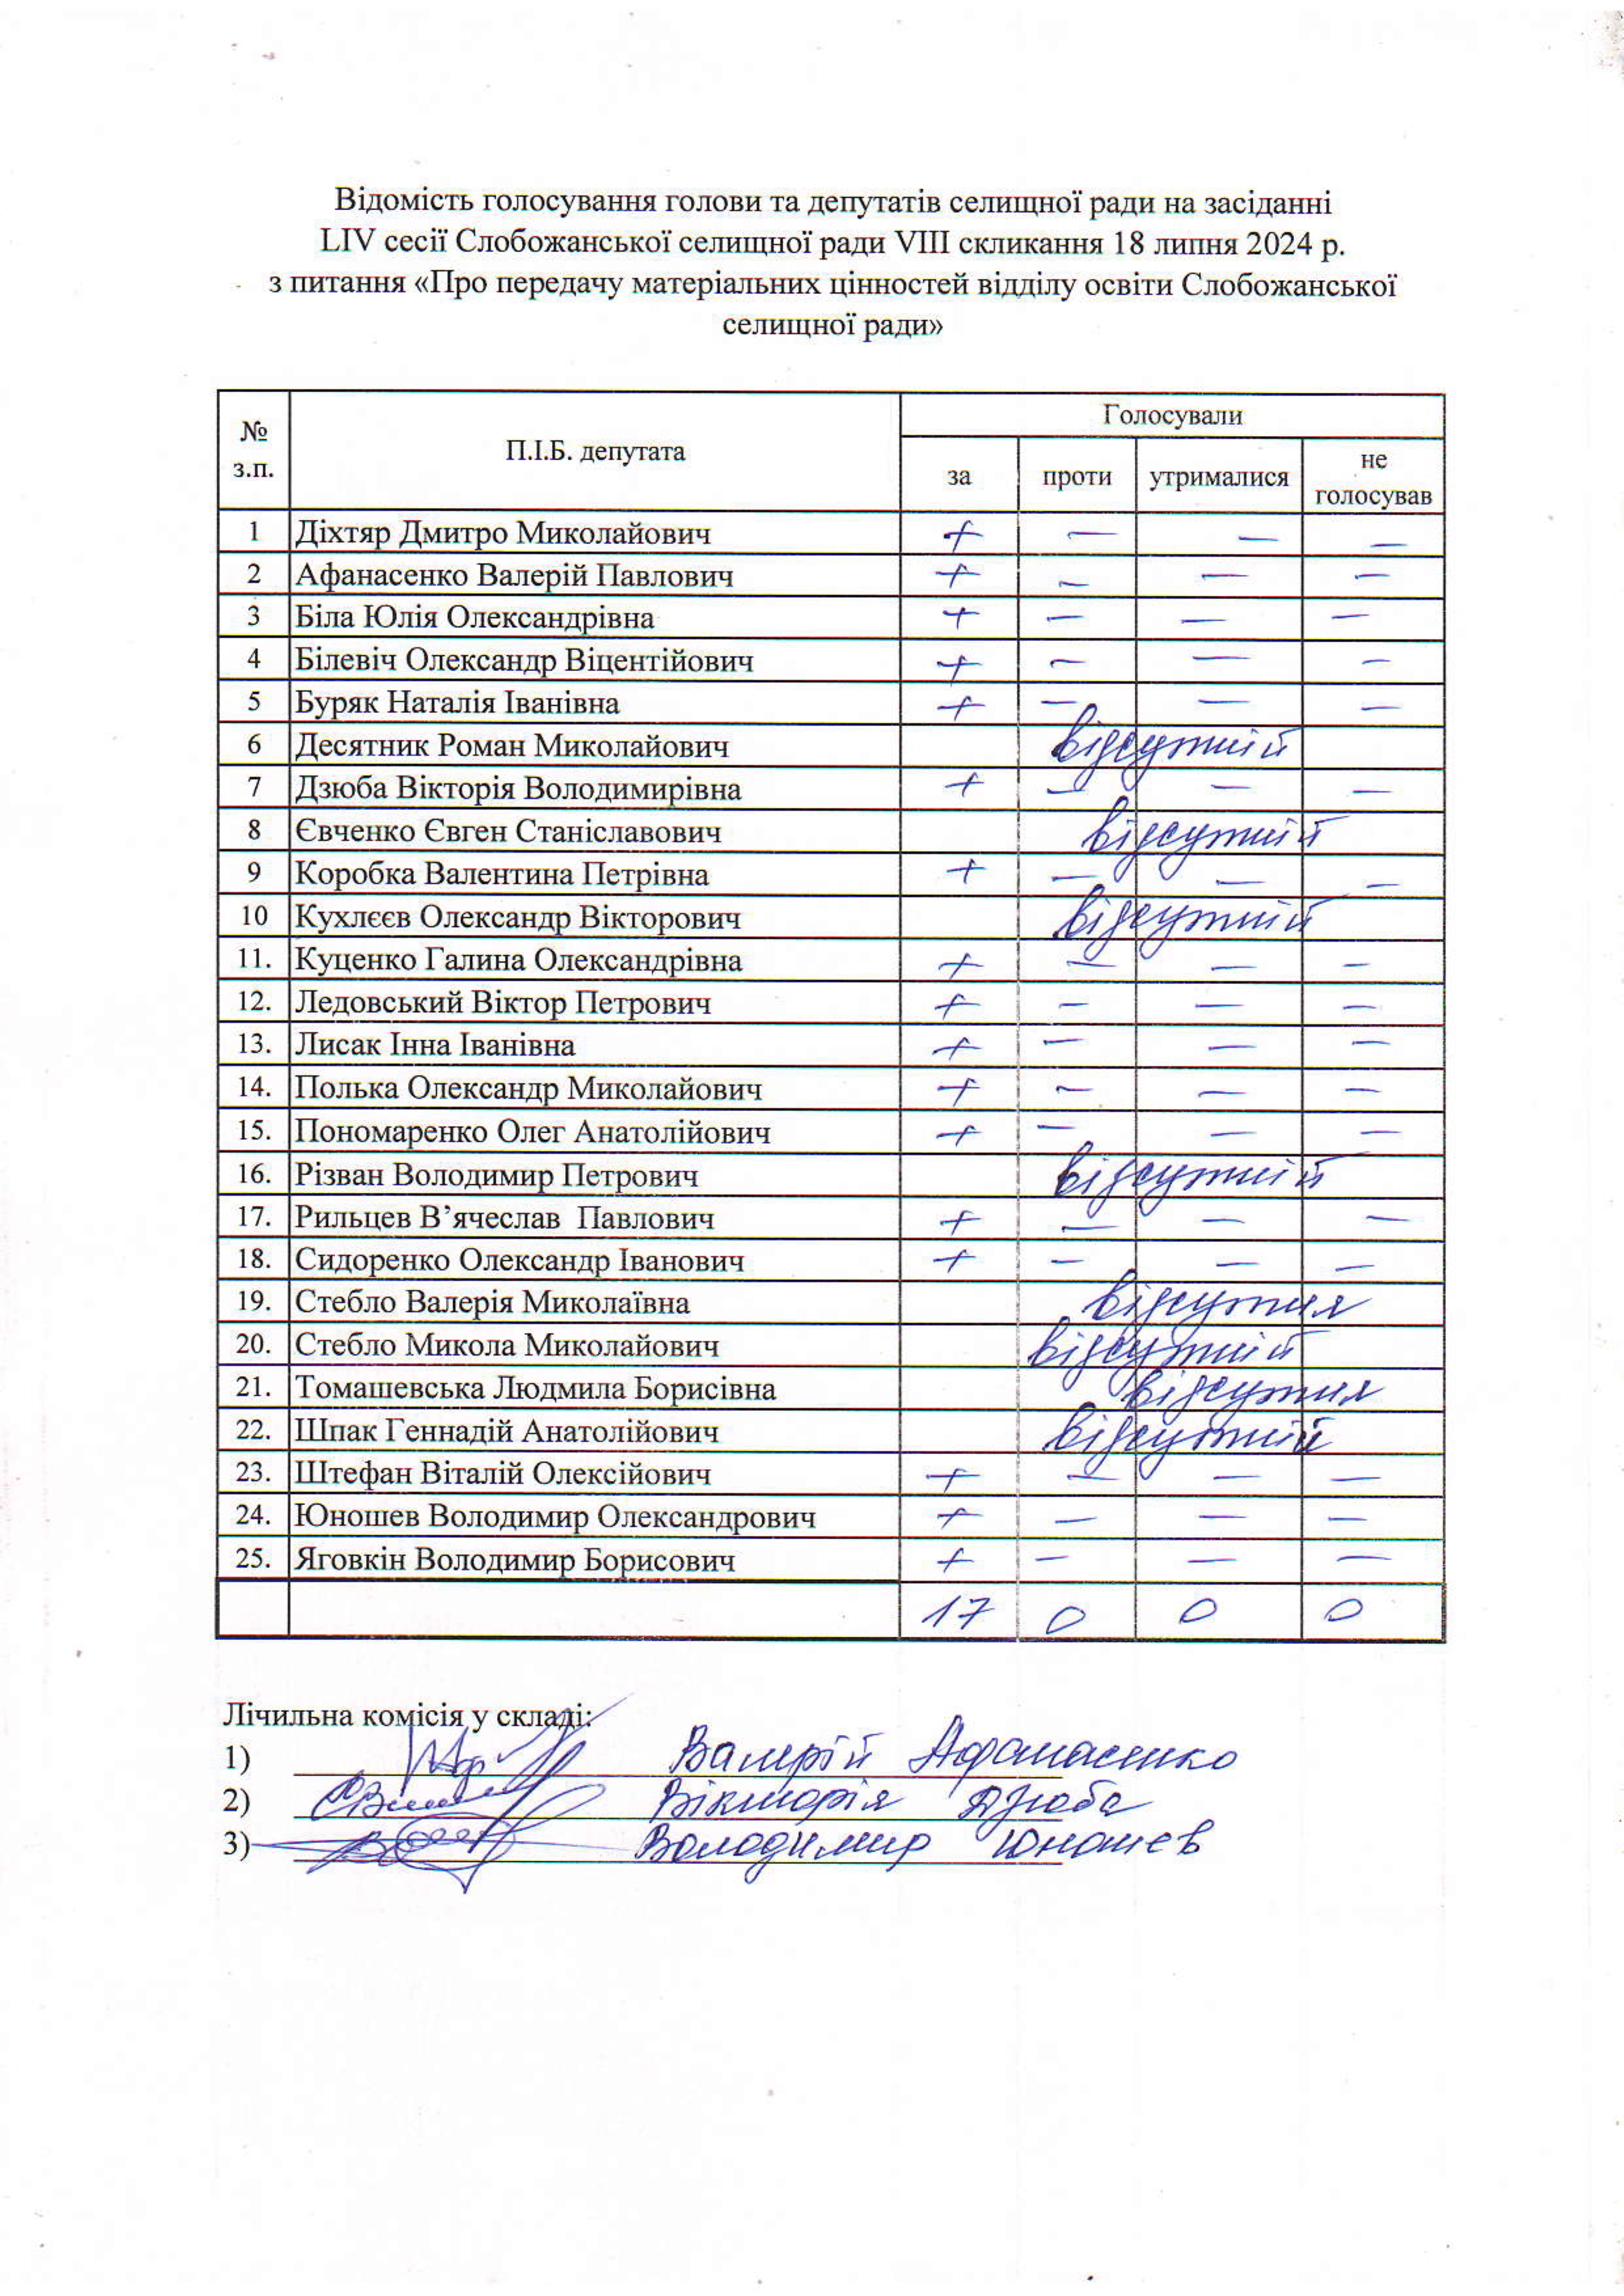 Відомість голосування голови та депутатів селищної ради на засіданні
LIV сесії Слобожанської селищної ради VIII скликання 18 липня 2024 р.
з питання «Про передачу матеріальних цінностей відділу освіти Слобожанської
селищної ради»
№ з.п. П.І.Б. депутата Голосували
за проти утрималися не голосував
1 Діхтяр Дмитро Миколайович + — — —
2 Афанасенко Валерій Павлович + — — —
3 Біла Юлія Олександрівна + — — —
4 Білевіч Олександр Віцентійович + — — —
5 Буряк Наталія Іванівна + — — —
6 Десятник Роман Миколайович відсутній
7 Дзюба Вікторія Володимирівна + — — —
8 Євченко Євген Станіславович відсутній
9 Коробка Валентина Петрівна + — — —
10 Кухлєєв Олександр Вікторович відсутній
11. Куценко Галина Олександрівна + — — —
12. Ледовський Віктор Петрович + — — —
13. Лисак Інна Іванівна + — — —
14. Полька Олександр Миколайович + — — —
15. Пономаренко Олег Анатолійович + — — —
16. Різван Володимир Петрович відсутній
17. Рильцев В’ячеслав Павлович + — — —
18. Сидоренко Олександр Іванович + — — —
19. Стебло Валерія Миколаївна відсутня
20. Стебло Микола Миколайович відсутній
21. Томашевська Людмила Борисівна відсутня
22. Шпак Геннадій Анатолійович відсутній
23. Штефан Віталій Олексійович + — — —
24. Юношев Володимир Олександрович + — — —
25. Яговкін Володимир Борисович + — — —
17 0 0 0
Лічильна комісія у складі:
1) Валерій Афанасенко
2) Вікторія Дзюба
3) Володимир Юношев